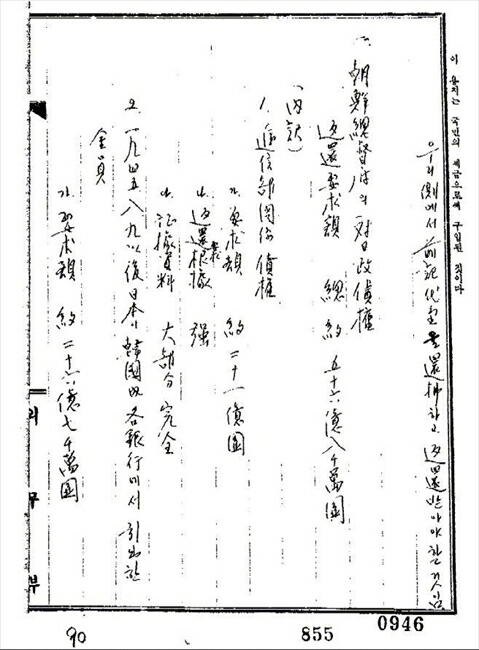 이 용지는 국민의 세금으로써 구입된 것이다
우리側에서 前記代金을 還拂하고 返還받아야 할 것임
朝鮮總督府의 對日政債權
返還要求額 總約 五十六億八千萬圓
(內訳)
1. 逓信部關係債權
가. 要求額 約 二十一億圓
나. 返還根據 强
다. 証據資料 大部分 完全
2. 一九四五、八、九以後日本이 韓國內 各銀行에서 引出한
金員
가. 要求額 約 二十六億七千萬圓
외무부
90
855
0946